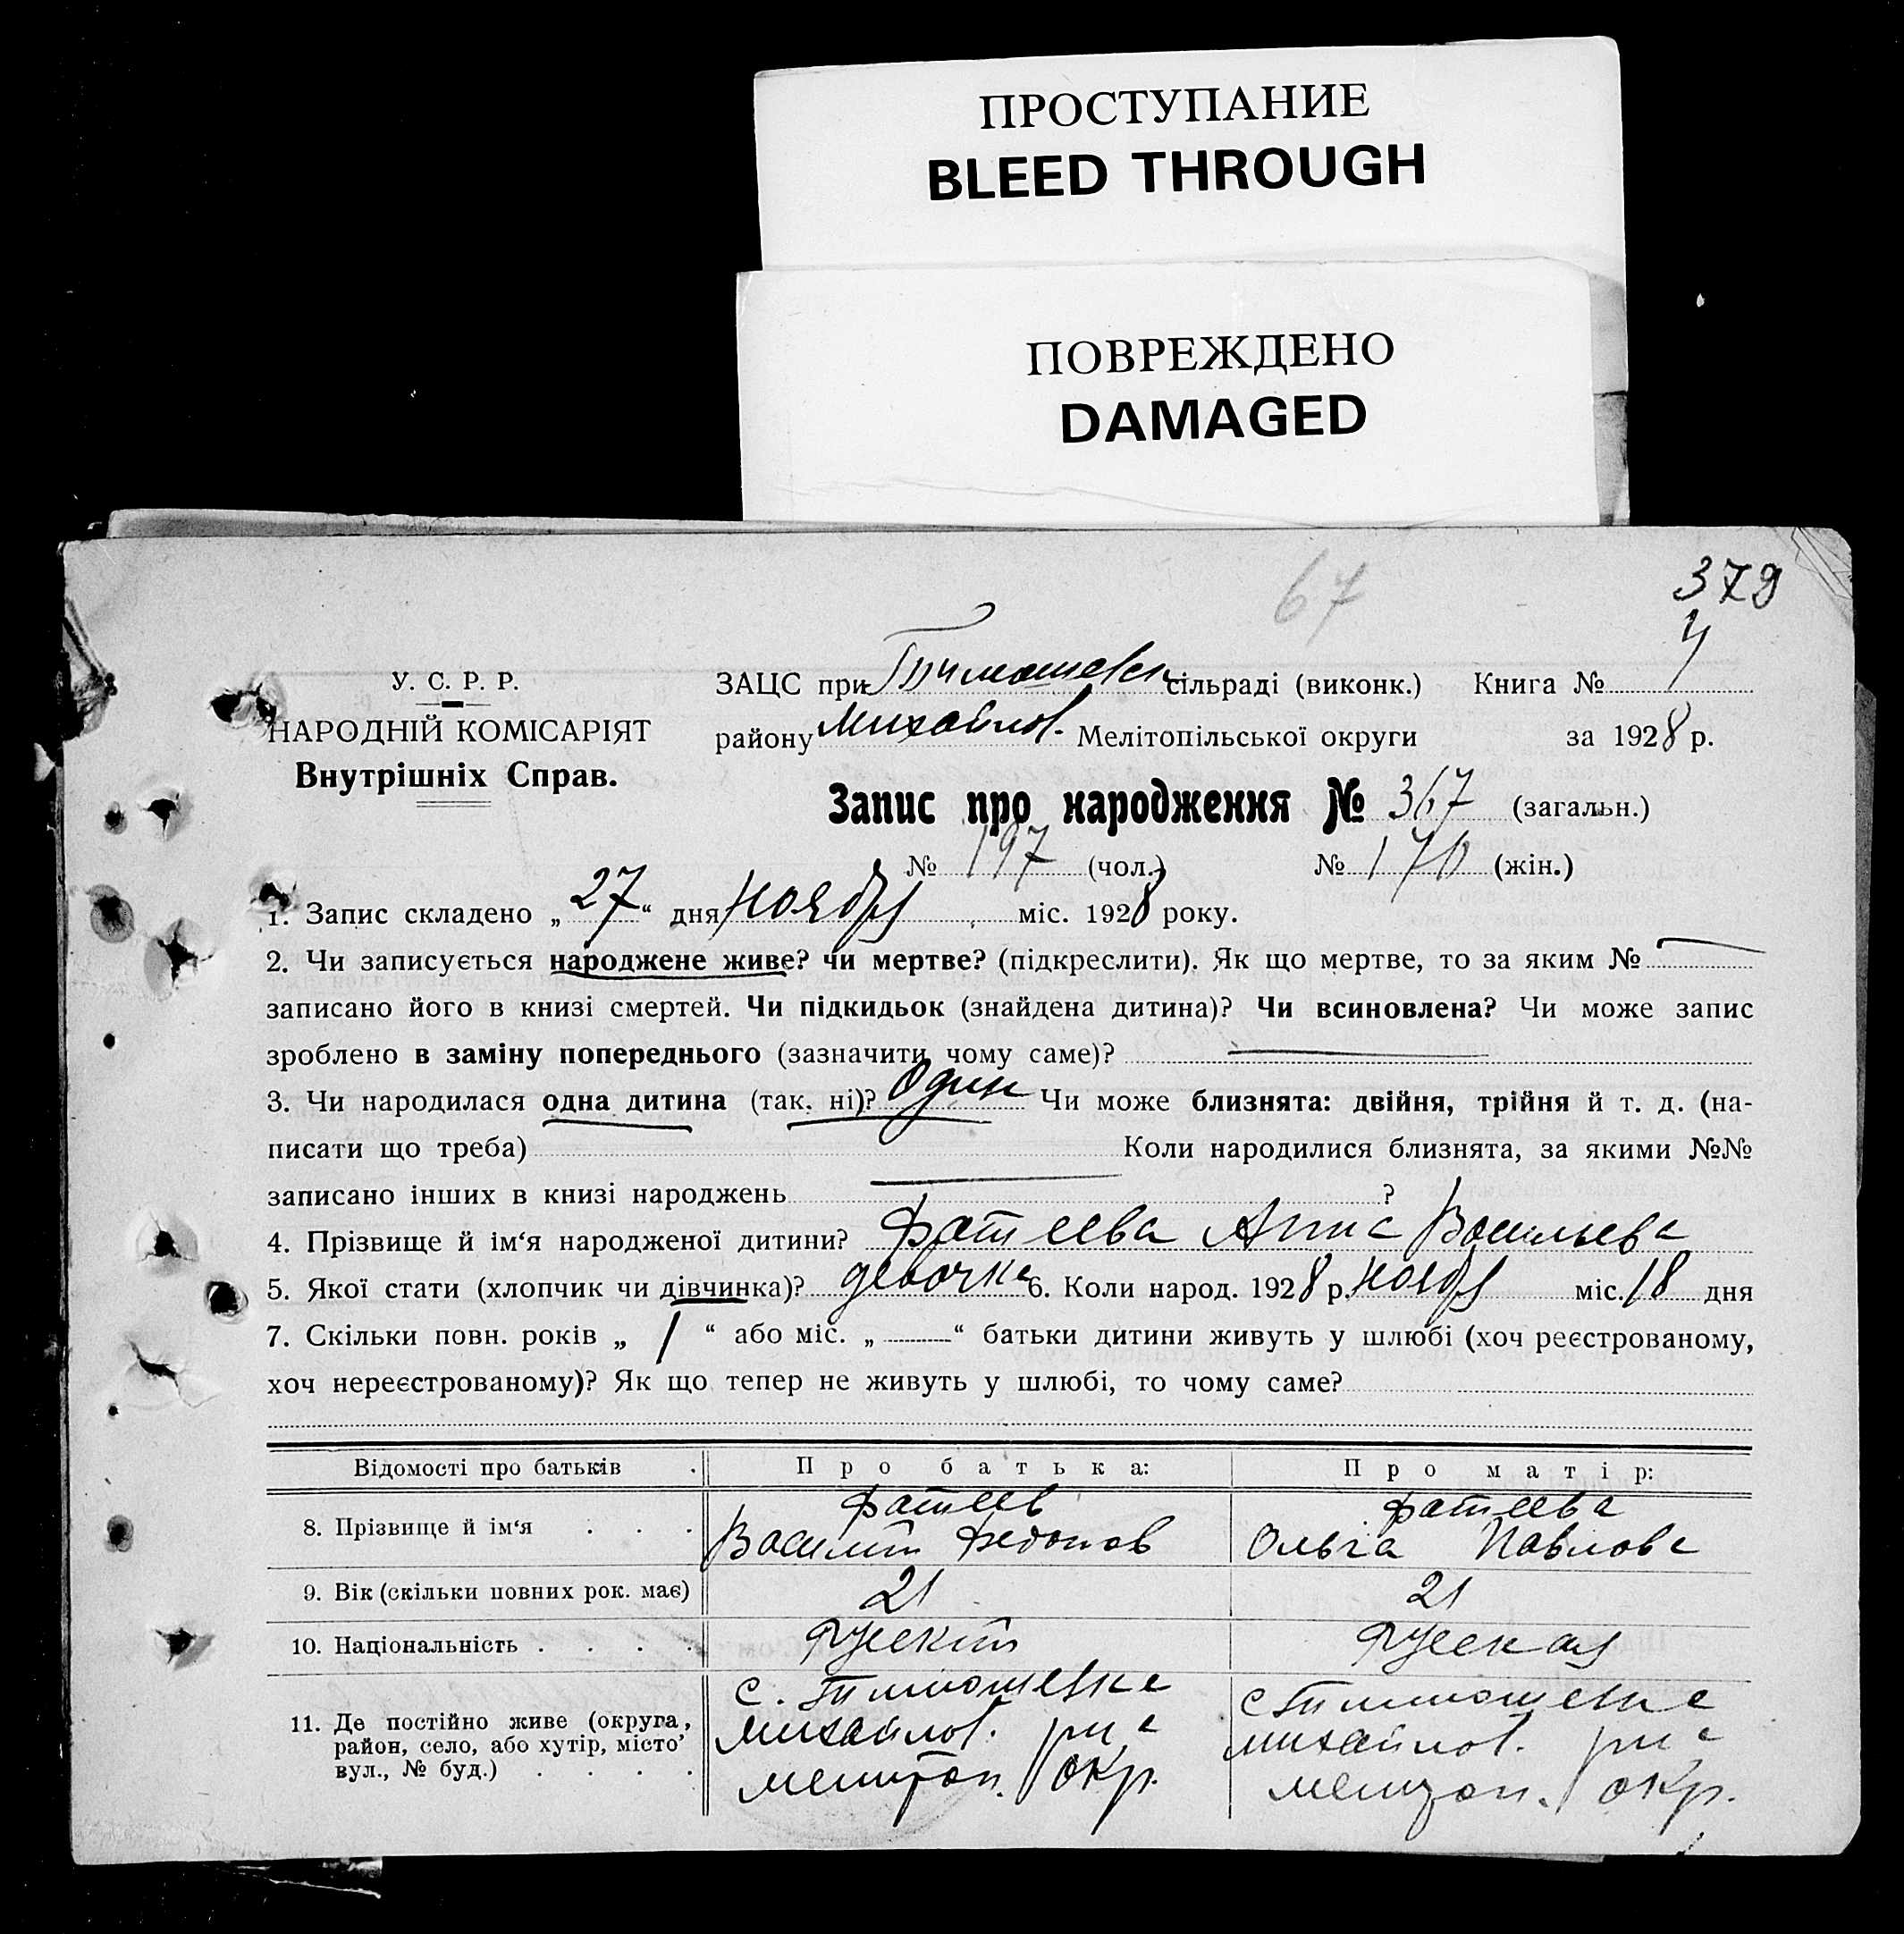 ПРОСТУПАНИЕ
BLEED THROUGH
ПОВРЕЖДЕНО
DAMAGED
67
379
У. С. Р. Р.
НАРОДНІЙ КОМІСАРІЯТ
Внутрішніх Справ.
ЗАЦС при Тимошевск сільраді (виконк.) Книга № 4
району Михайлов. Мелітопільської округи за 1928 р.
Запис про народження № 367 (загальн.)
№ 197 (чол.) № 170 (жін.)
1. Запис складено „27“ дня ноября міс. 1928 року.
2. Чи записується народжене живе? чи мертве? (підкреслити). Як що мертве, то за яким №
записано його в книзі смертей. Чи підкидьок (знайдена дитина)? Чи всиновлена? Чи може запис
зроблено в заміну попереднього (зазначити чому саме)?
3. Чи народилася одна дитина (так, ні)? Один Чи може близнята: двійня, трійня й т. д. (на-
писати що треба) Коли народилися близнята, за якими №№
записано інших в книзі народжень ?
4. Прізвище й ім‘я народженої дитини? Фатеева Анна Васильева
5. Якої стати (хлопчик чи дівчинка)? девочка 6. Коли народ. 1928 р. ноября міс. 18 дня
7. Скільки повн. років „ 1 “ або міс. „ “ батьки дитини живуть у шлюбі (хоч реєстрованому,
хоч нереєстрованому)? Як що тепер не живуть у шлюбі, то чому саме?
Відомості про батьків
Про батька:
Про матір:
8. Прізвище й ім‘я . . .
Фатеев
Василий Федотов
Фатеева
Ольга Павлова
9. Вік (скільки повних рок. має)
21
21
10. Національність . . . .
Руский
Руская
11. Де постійно живе (округа,
район, село, або хутір, місто,
вул., № буд.) . . . .
с. Тимошевка
Михайлов. р-на
Мелитоп. окр.
с Тимошевка
Михайлов. р-на
Мелитоп. окр.